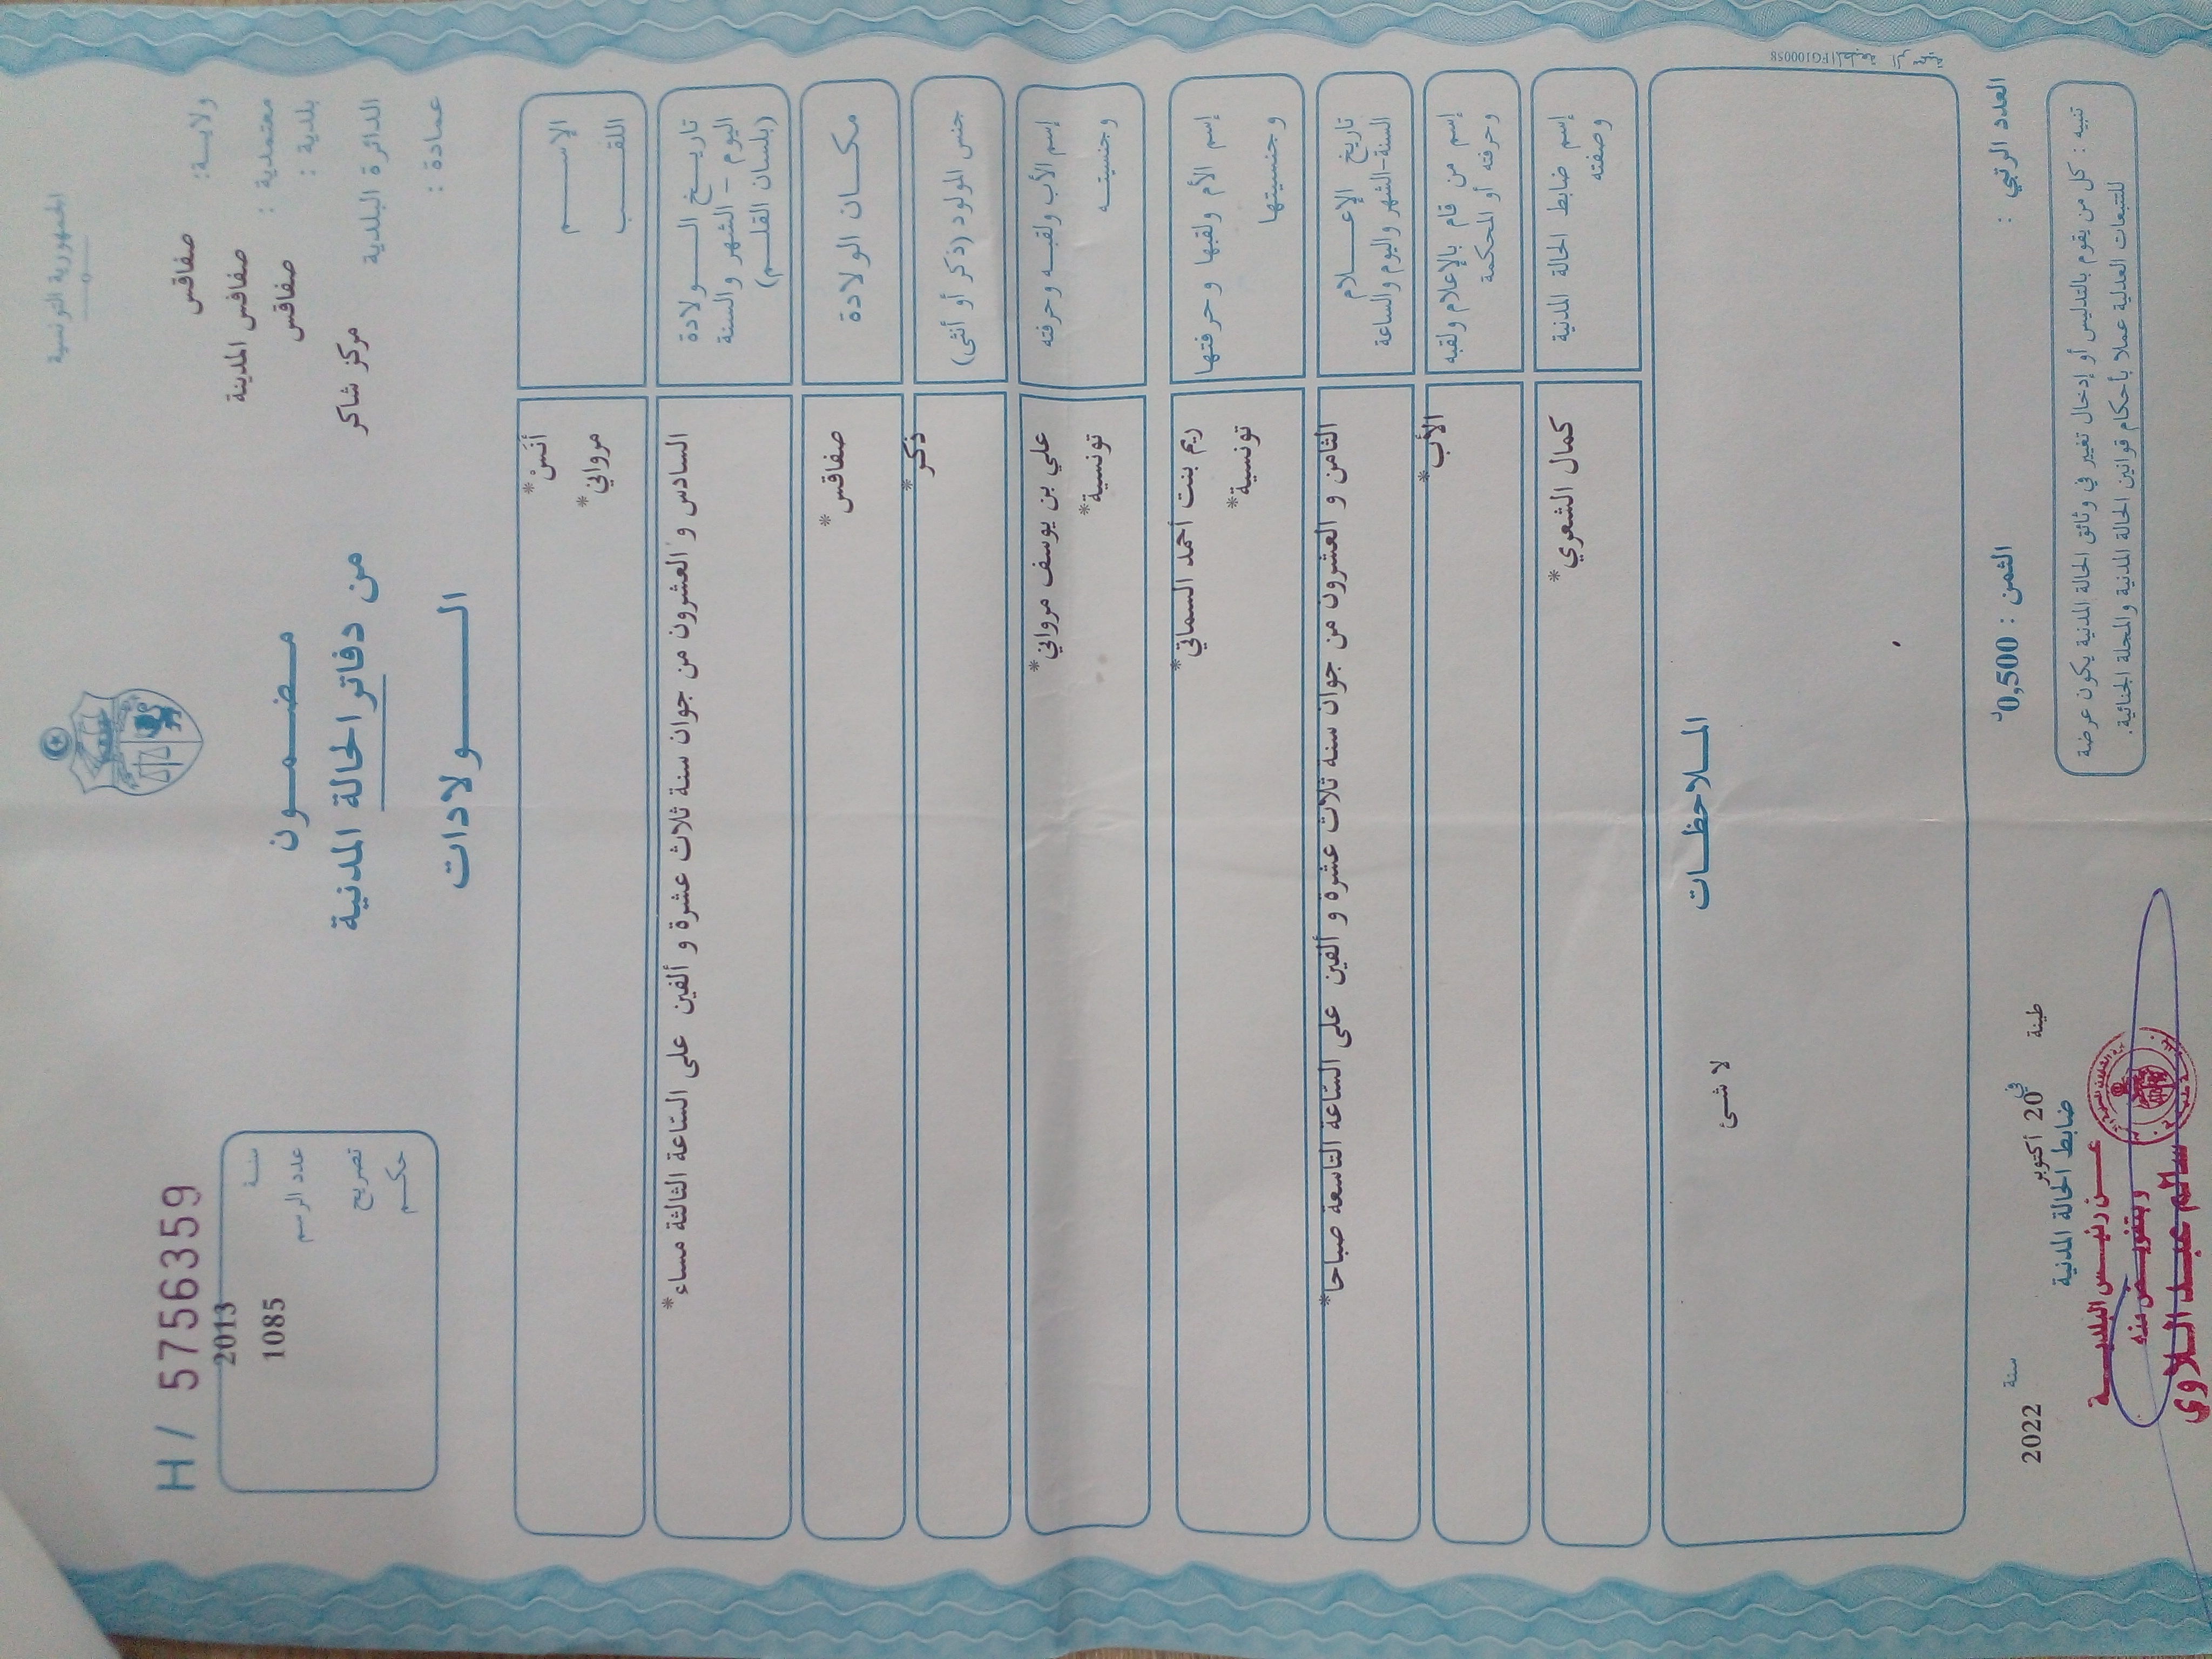 الجمهورية التونسية
ولاية: صفاقس
معتمدية : صفاقس المدينة
بلدية : صفاقس
الدائرة البلدية مركز شاكر
عمادة :
مضمون
من دفاتر الحالة المدنية
الولادات
H/ 5756359
سنة 2013
عدد الرسم 1085
تصريح
حكم
الإسم أَنَسْ*
اللقب مرواني*
تاريخ الولادة السادس و العشرون من جوان سنة ثلاث عشرة و ألفين على السّاعة الثالثة مساء*
اليوم - الشهر والسنة
(بلسان القلم)
مكان الولادة صفاقس*
جنس المولود (ذكر أو أنثى) ذكر*
إسم الأب ولقبه وحرفته علي بن يوسف مرواني*
وجنسيته تونسية*
إسم الأم ولقبها وحرفتها ريم بنت أحمد السماتي*
وجنسيتها تونسية*
تاريخ الإعلام الثامن و العشرون من جوان سنة ثلاث عشرة و ألفين على السّاعة التاسعة صباحا*
السنة-الشهر واليوم والساعة
إسم من قام بالإعلام ولقبه الأب*
وحرفته أو المحكمة
إسم ضابط الحالة المدنية كمال الشعري*
وصفته
الملاحظات
لا شئ
العدد الرتبي :
الثمن : 0,500د
طينة في 20 أكتوبر سنة 2022
ضابط الحالة المدنية
عن رئيس البلدية
وبتفويض منه
سالم عبد اللاوي
تنبيه : كل من يقوم بالتدليس أو إدخال تغيير في وثائق الحالة المدنية يكون عرضة
للتتبعات العدلية عملا بأحكام قوانين الحالة المدنية والمجلة الجنائية.
FG100058